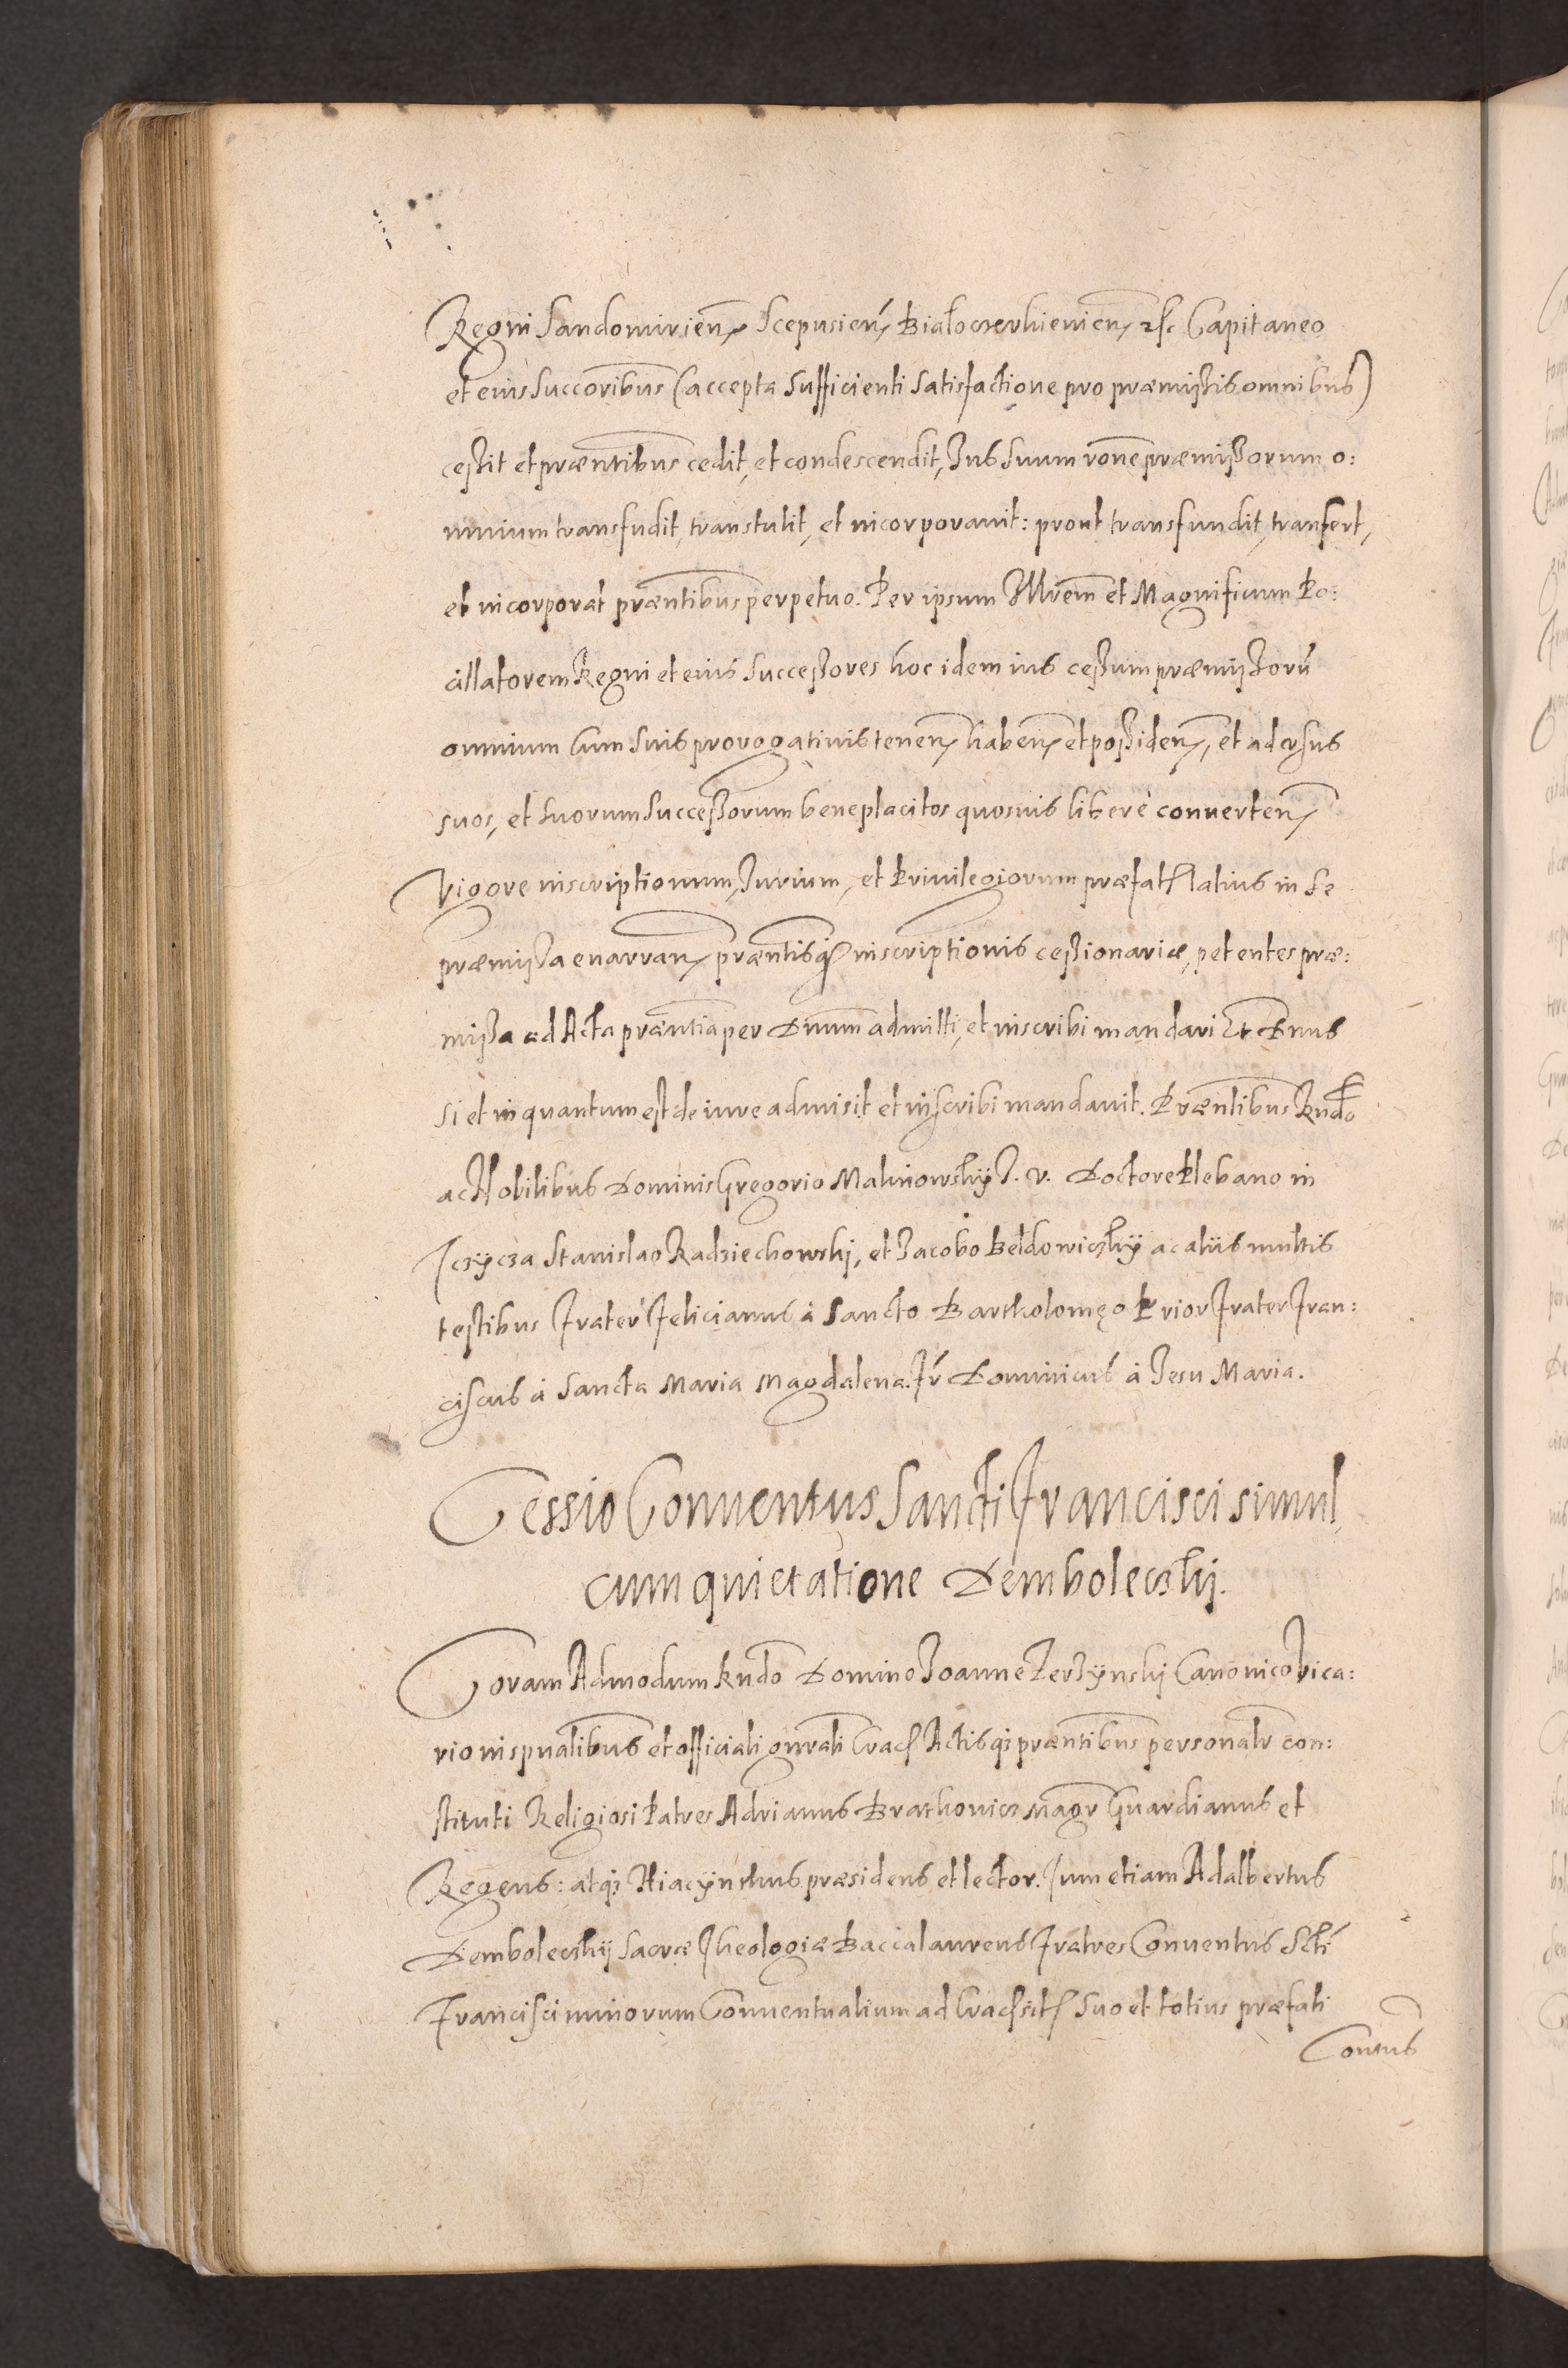 Regni Sandomirien Scepusien Białocerkieuien etc. Capitaneo
et eius Succoribus (accepta Sufficienti Satisfactione pro præmissis omnibus)
cessit et præntibus cedit, et condescendit, Jus Suum rone præmissorum o:
mnium transfudit, transtulit, et incorporauit: prout transfundit, tranfert,
et incorporat præntibus perpetuo. Per ipsum Illrem et Magnificum Po:
cillatorem Regni et eius Successores hoc idem ius cessum præmissorũ
omnium Cum Suis prorogatiuis tenen haben et possiden, et ad usus
suos, et Suorum Successorum beneplacitos quosuis liberè conuerten
Vigore inscriptionum, Jurium, et Priuilegiorum præfat latius in Se
præmissa enarran præntisq; inscriptionis cessionariæ, petentes præ:
missa ad Acta præntia per Dnum admitti, et inscribi mandari Et Dnus
Si et in quantum est de iure admisit et inscribi mandauit. Præntibus Rndo
ac Nobilibus Dominis Gregorio Malinowskij J. V. Doctore Plebano in
Jczÿcza Stanislao Radziechowskj, et Jacobo Bełdowiczkÿ ac aliis multis
testibus Frater Felicianus à Sancto Bartholomęo Prior Frater Fran:
ciscus à Sancta Maria Magdalena. Fr Dominicus à Jesu Maria.
Cessio Conuentus Sancti Francisci simul
cum quietatione Demboleczkj.
Coram Admodum Rndo Domino Joanne Jerzÿnskj Canonico Vica:
rio in spualibus et officiali gnrali Crac Actisq; præntibus personalr con:
stituti Religiosi Patres Adrianus Brathonicz Magr Guardianus et
Regens: atq; Hiacÿnthus præsidens et lector. Tum etiam Adalbertus
Demboleczkij Sacræ Theologiæ Baccalaureus Fratres Conuentus Scti
Francisci minorum Conuentualium ad Crac sit Suo et totius præfati
Contus